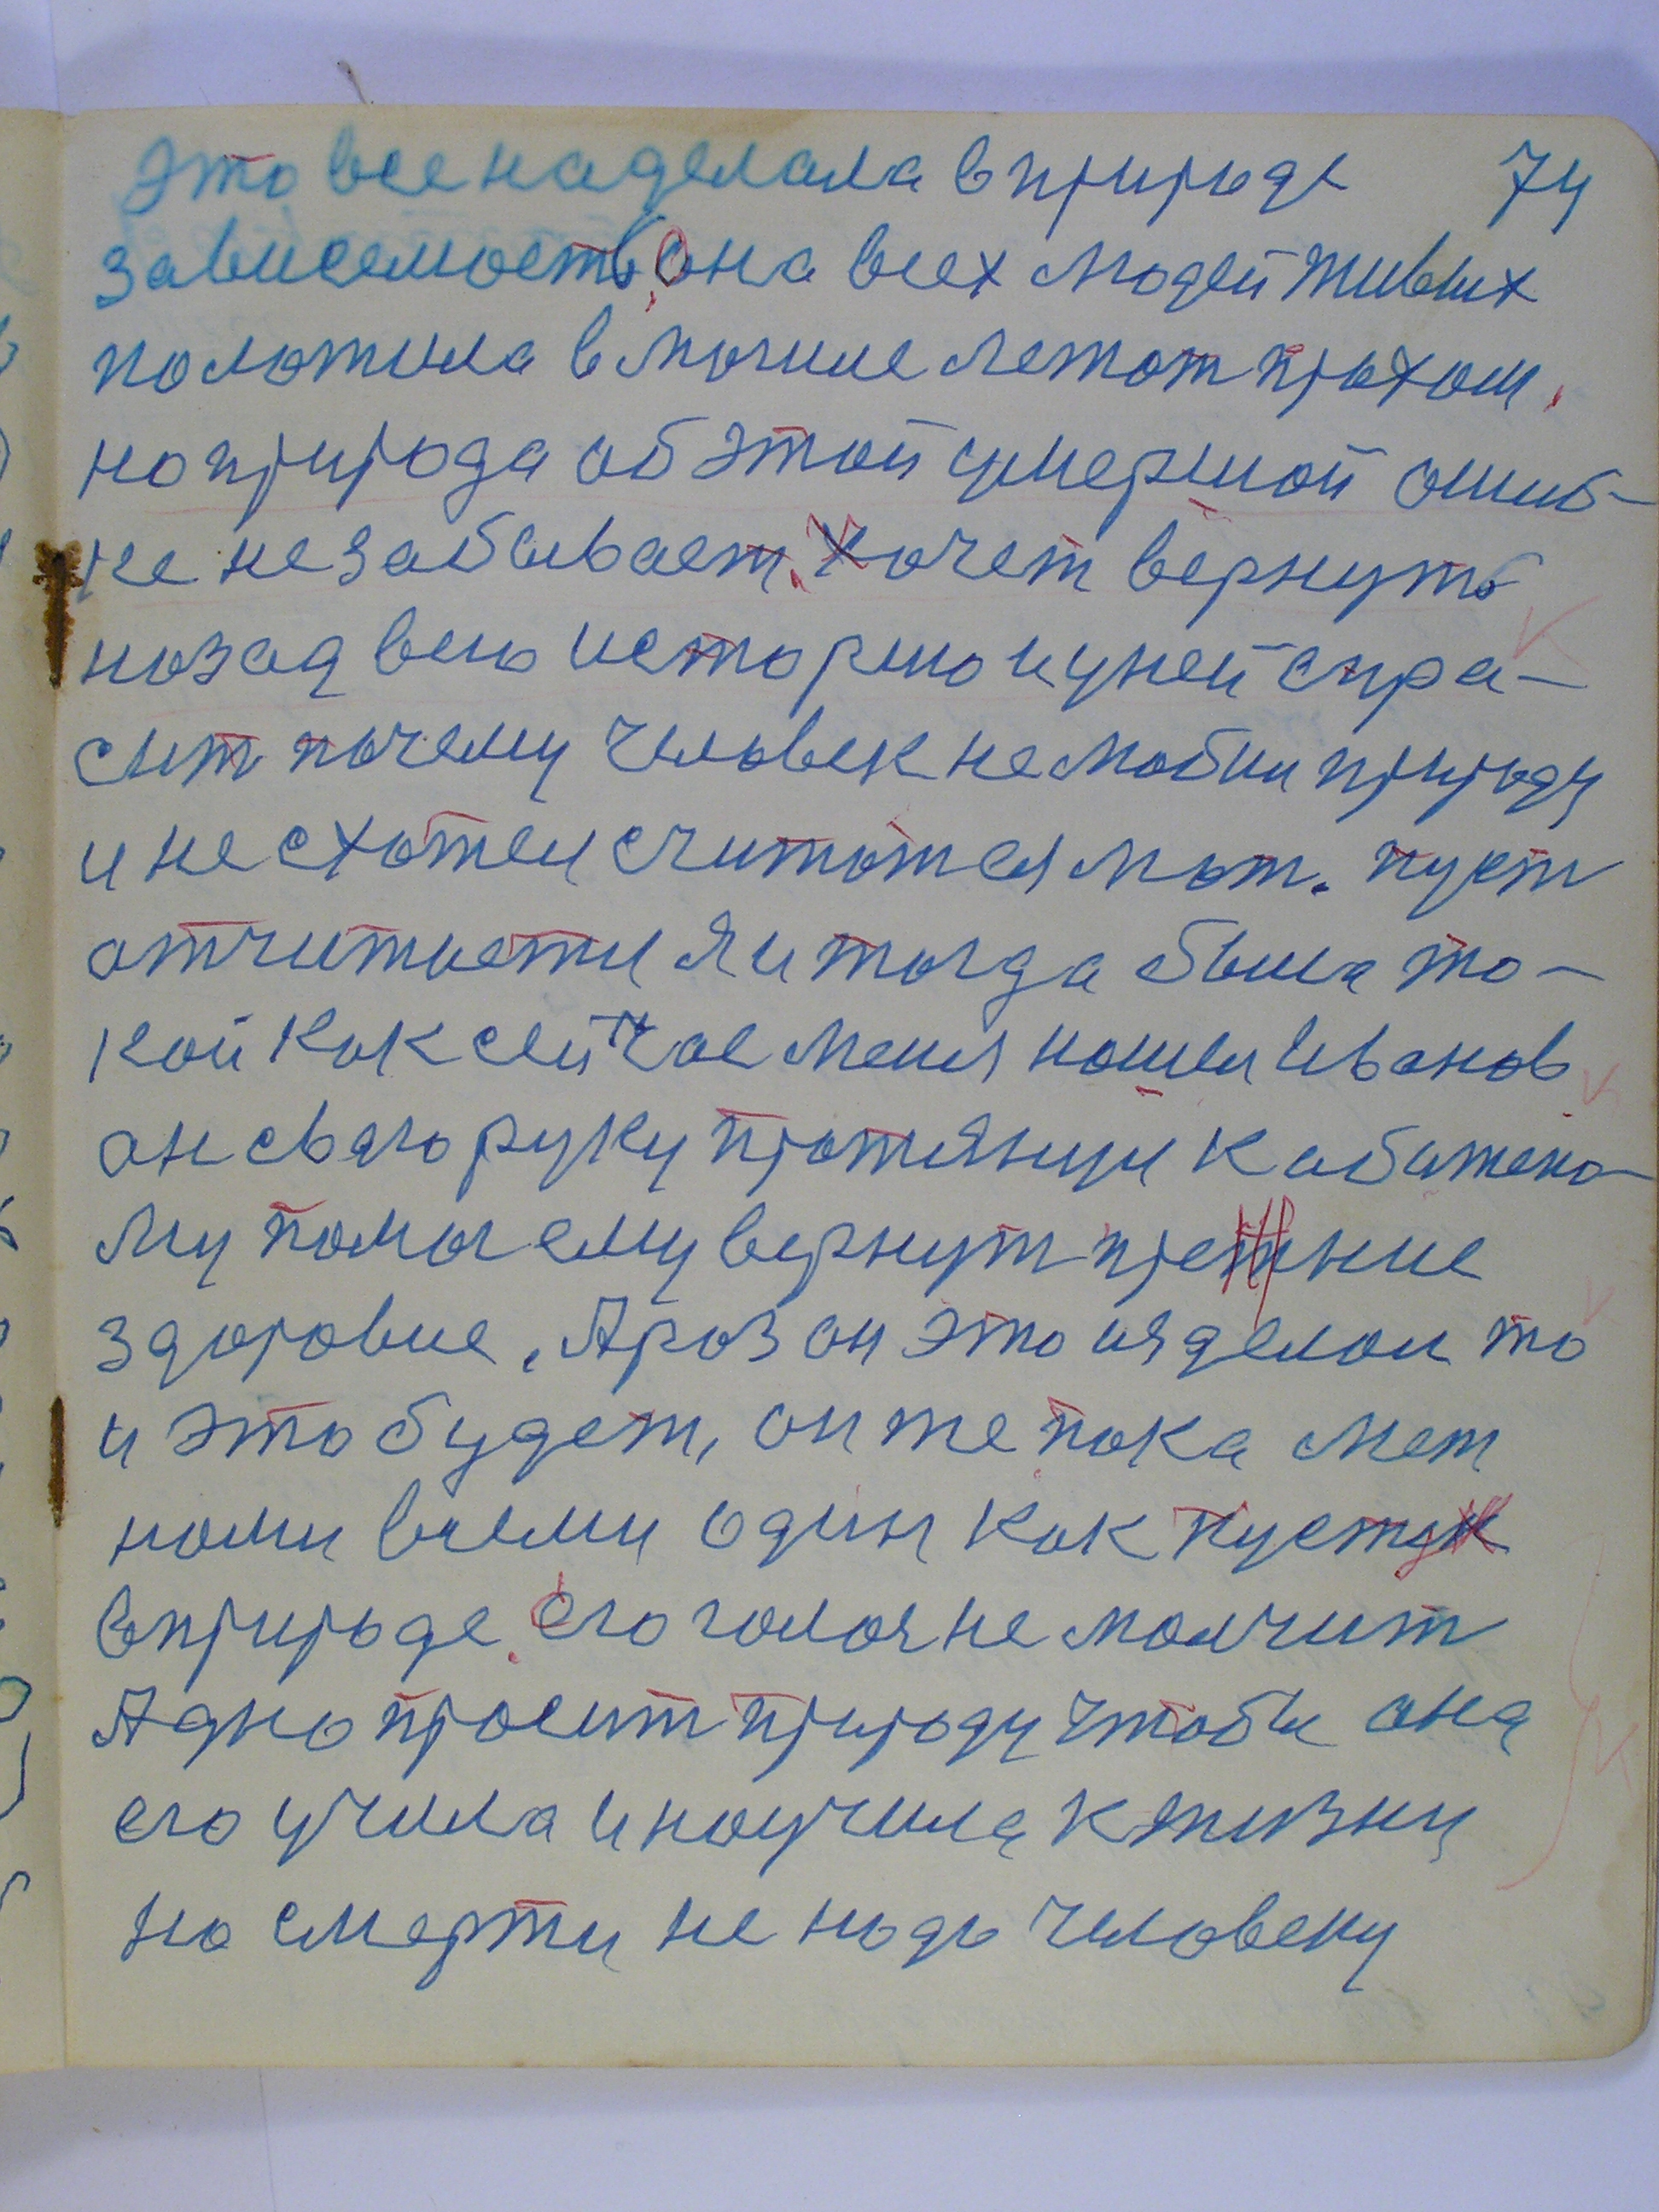 это все наделала в природе 74
зависемость, она всех людей живых
положила в могиле лежат прахом,
но природа об этой умершой ошиб-
ке не забывает. хочет вернуть
назад всю историю и у ней спра-
сит почему человек не любил природу
и не схотел считотся мол. пуст
отчитается Я и тогда была та-
кой как сейчас меня нашел Иванов
он свою руку протянул к обижено-
му помог ему вернут прежние
здоровие. А раз он это изделал то
и это будет, он же пока меж
нами всеми один как пустук
в природе. его голос не молчит
А одно просит природу чтобы она
его учила и научила к жизни
но смерти не надо человеку